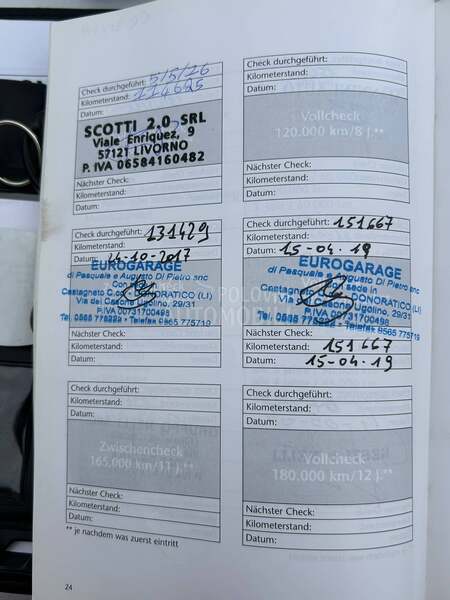 Check durchgeführt: 5/5/16
Kilometerstand: 114625
Datum:
SCOTTI 2.0 SRL
Viale Enriquez, 9
57121 LIVORNO
P. IVA 06584160482
Nächster Check:
Kilometerstand:
Datum:
Check durchgeführt:
Kilometerstand:
Datum:
Vollcheck
120.000 km/8 J.**
Nächster Check:
Kilometerstand:
Datum:
Check durchgeführt: 131429
Kilometerstand:
Datum: 24-10-2017
EUROGARAGE
di Pasquale e Augusto Di Pietro snc
Castagneto C. DONORATICO (LI)
Via del Casone Ugolino, 29/31
P.IVA 00731700498
Tel. 0565 775229 • Telefax 0565 775719
Nächster Check:
Kilometerstand:
Datum:
Check durchgeführt: 151667
Kilometerstand:
Datum: 15-04-19
EUROGARAGE
di Pasquale e Augusto Di Pietro snc
Con sede in
Castagneto C. DONORATICO (LI)
Via del Casone Ugolino, 29/31
P.IVA 00731700498
Telefax 0565 775719
Nächster Check:
Kilometerstand: 151667
Datum: 15-04-19
POLOVNI
AUTOMOBILI
Check durchgeführt:
Kilometerstand:
Datum:
Zwischencheck
165.000 km/11 J.**
Nächster Check:
Kilometerstand:
Datum:
Check durchgeführt:
Kilometerstand:
Datum:
Vollcheck
180.000 km/12 J.**
Nächster Check:
Kilometerstand:
Datum:
** je nachdem was zuerst eintritt
24